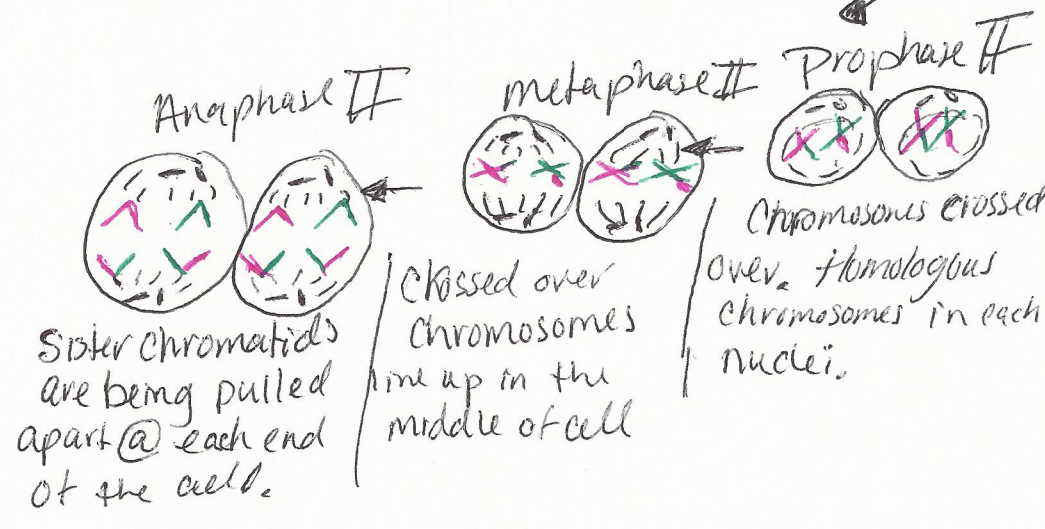 Anaphase II
Sister chromatids
are being pulled
apart @ each end
of the cell.
metaphase II
Crossed over
chromosomes
line up in the
middle of cell
Prophase II
Chromosomes crossed
over. Homologous
chromosomes in each
nuclei.